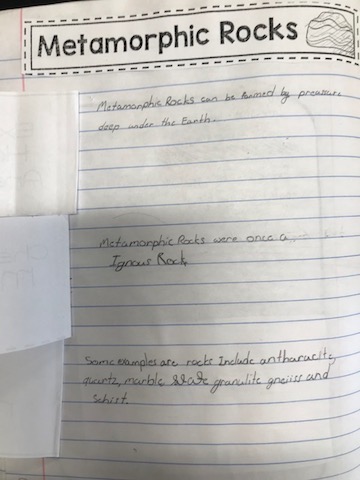 Metamorphic Rocks
Metamorphic Rocks can be formed by pressure
deep under the Earth.
Metamorphic Rocks were once a
Ignous Rock
Some examples are rocks Include antharacite,
quartz, marble slate granulite gneiiss and
Schist.